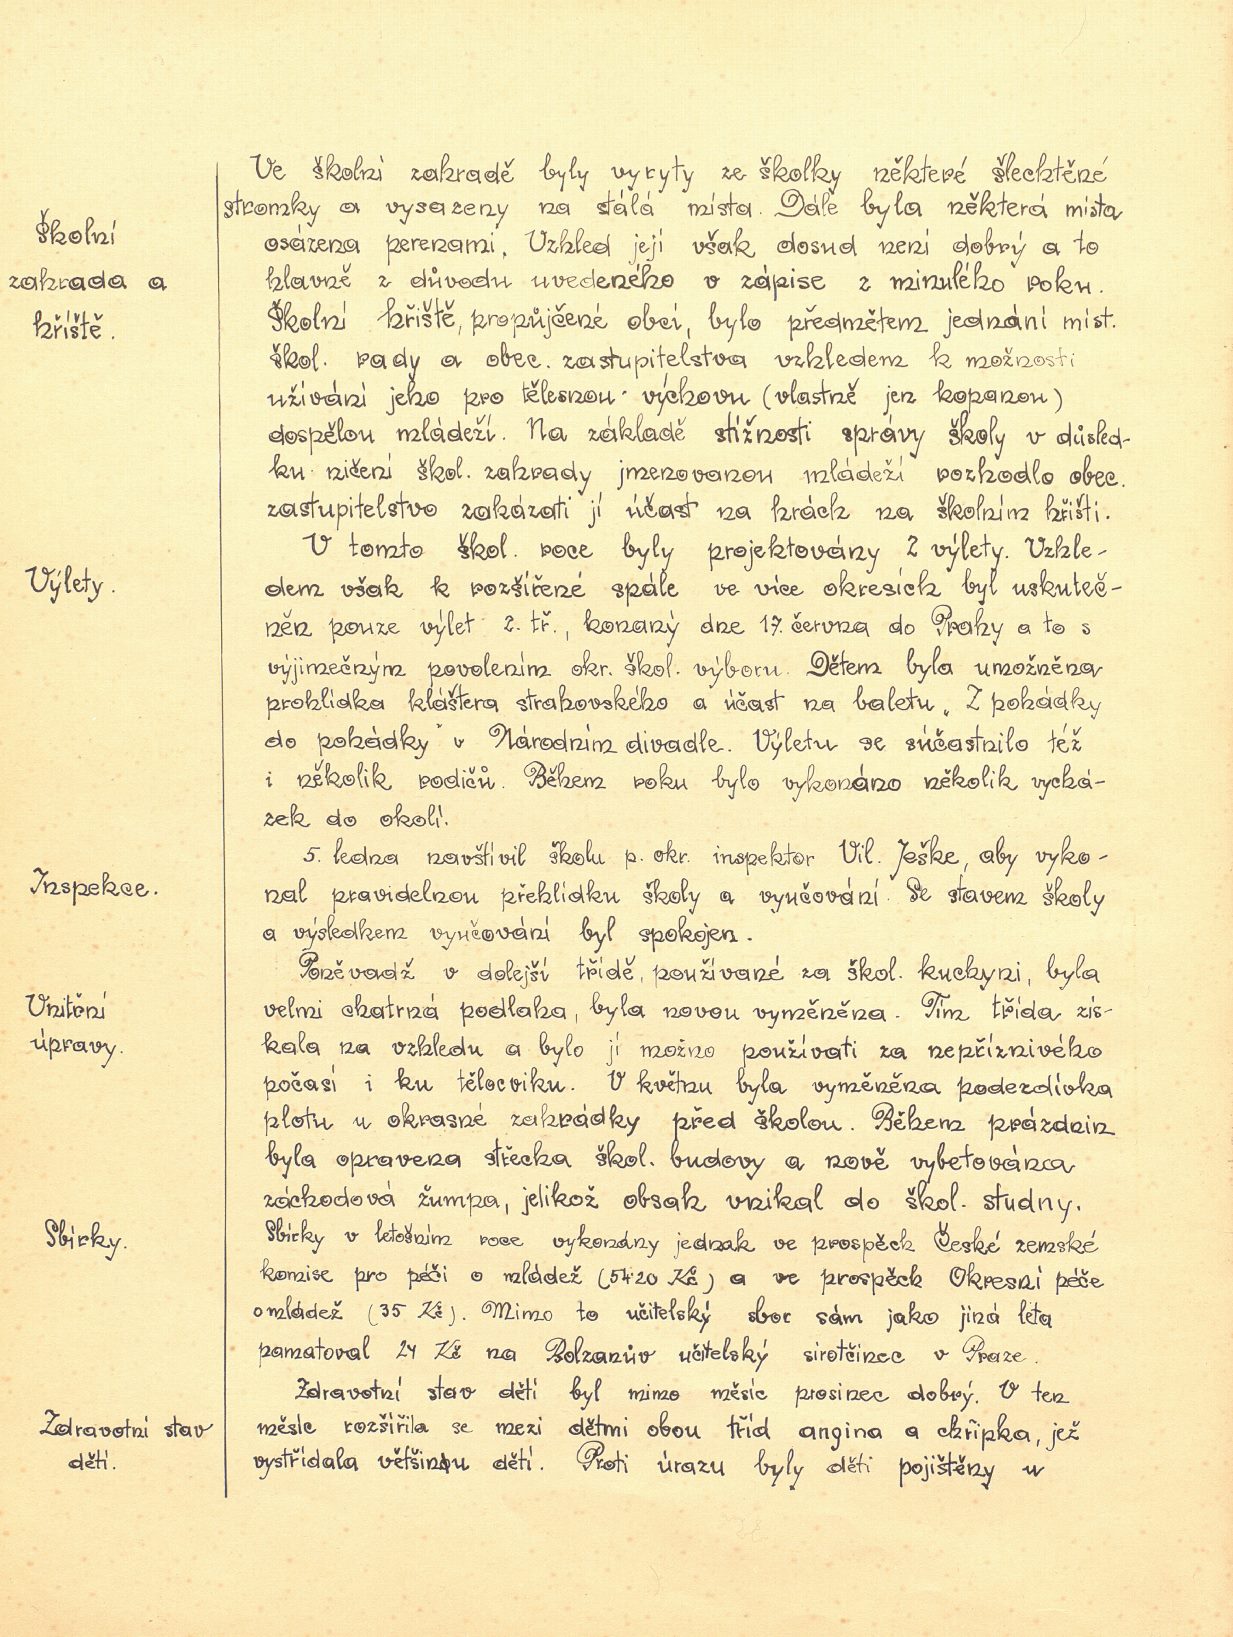 Ve školní zahradě byly vyryty ze školky některé šlechtěné
stromky a vysazeny na stálá místa. Dále byla některá místa
Školní
zahrada a
hřiště.
osázena perenami. Vzhled její však dosud není dobrý a to
hlavně z důvodu uvedeného v zápise z minulého roku.
Školní hřiště, propůjčené obcí, bylo předmětem jednání míst.
škol. rady a obec. zastupitelstva vzhledem k možnosti
užívání jeho pro tělesnou výchovu (vlastně jen kopanou)
dospělou mládeží. Na základě stížnosti správy školy v důsled-
ku ničení škol. zahrady jmenovanou mládeží rozhodlo obec.
zastupitelstvo zakázati jí účast na hrách na školním hřišti.
Výlety.
V tomto škol. roce byly projektovány 2 výlety. Vzhle-
dem však k rozšířené spále ve více okresích byl uskuteč-
něn pouze výlet 2. tř., konaný dne 17. června do Prahy a to s
výjimečným povolením okr. škol. výboru. Dětem byla umožněna
prohlídka kláštera strahovského a účast na baletu „Z pohádky
do pohádky" v Národním divadle. Výletu se súčastnilo též
i několik rodičů. Během roku bylo vykonáno několik vychá-
zek do okolí.
Inspekce.
5. ledna navštívil školu p. okr. inspektor Vil. Ješke, aby vyko-
nal pravidelnou přehlídku školy a vyučování. Se stavem školy
a výsledkem vyučování byl spokojen.
Vnitřní
úpravy.
Poněvadž v dolejší třídě, používané za škol. kuchyni, byla
velmi chatrná podlaha, byla novou vyměněna. Tím třída zís-
kala na vzhledu a bylo jí možno používati za nepříznivého
počasí i ku tělocviku. V květnu byla vyměněna podezdívka
plotu u okrasné zahrádky před školou. Během prázdnin
byla opravena střecha škol. budovy a nově vybetována
záchodová žumpa, jelikož obsah vnikal do škol. studny.
Sbírky.
Sbírky v letošním roce vykonány jednak ve prospěch České zemské
komise pro péči o mládež (5420 Kč) a ve prospěch Okresní péče
o mládež (35 Kč). Mimo to učitelský sbor sám jako jiná léta
pamatoval 24 Kč na Bolzanův učitelský sirotčinec v Praze.
Zdravotní stav
dětí.
Zdravotní stav dětí byl mimo měsíc prosinec dobrý. V ten
měsíc rozšířila se mezi dětmi obou tříd angina a chřipka, jež
vystřídala většinou děti. Proti úrazu byly děti pojištěny u